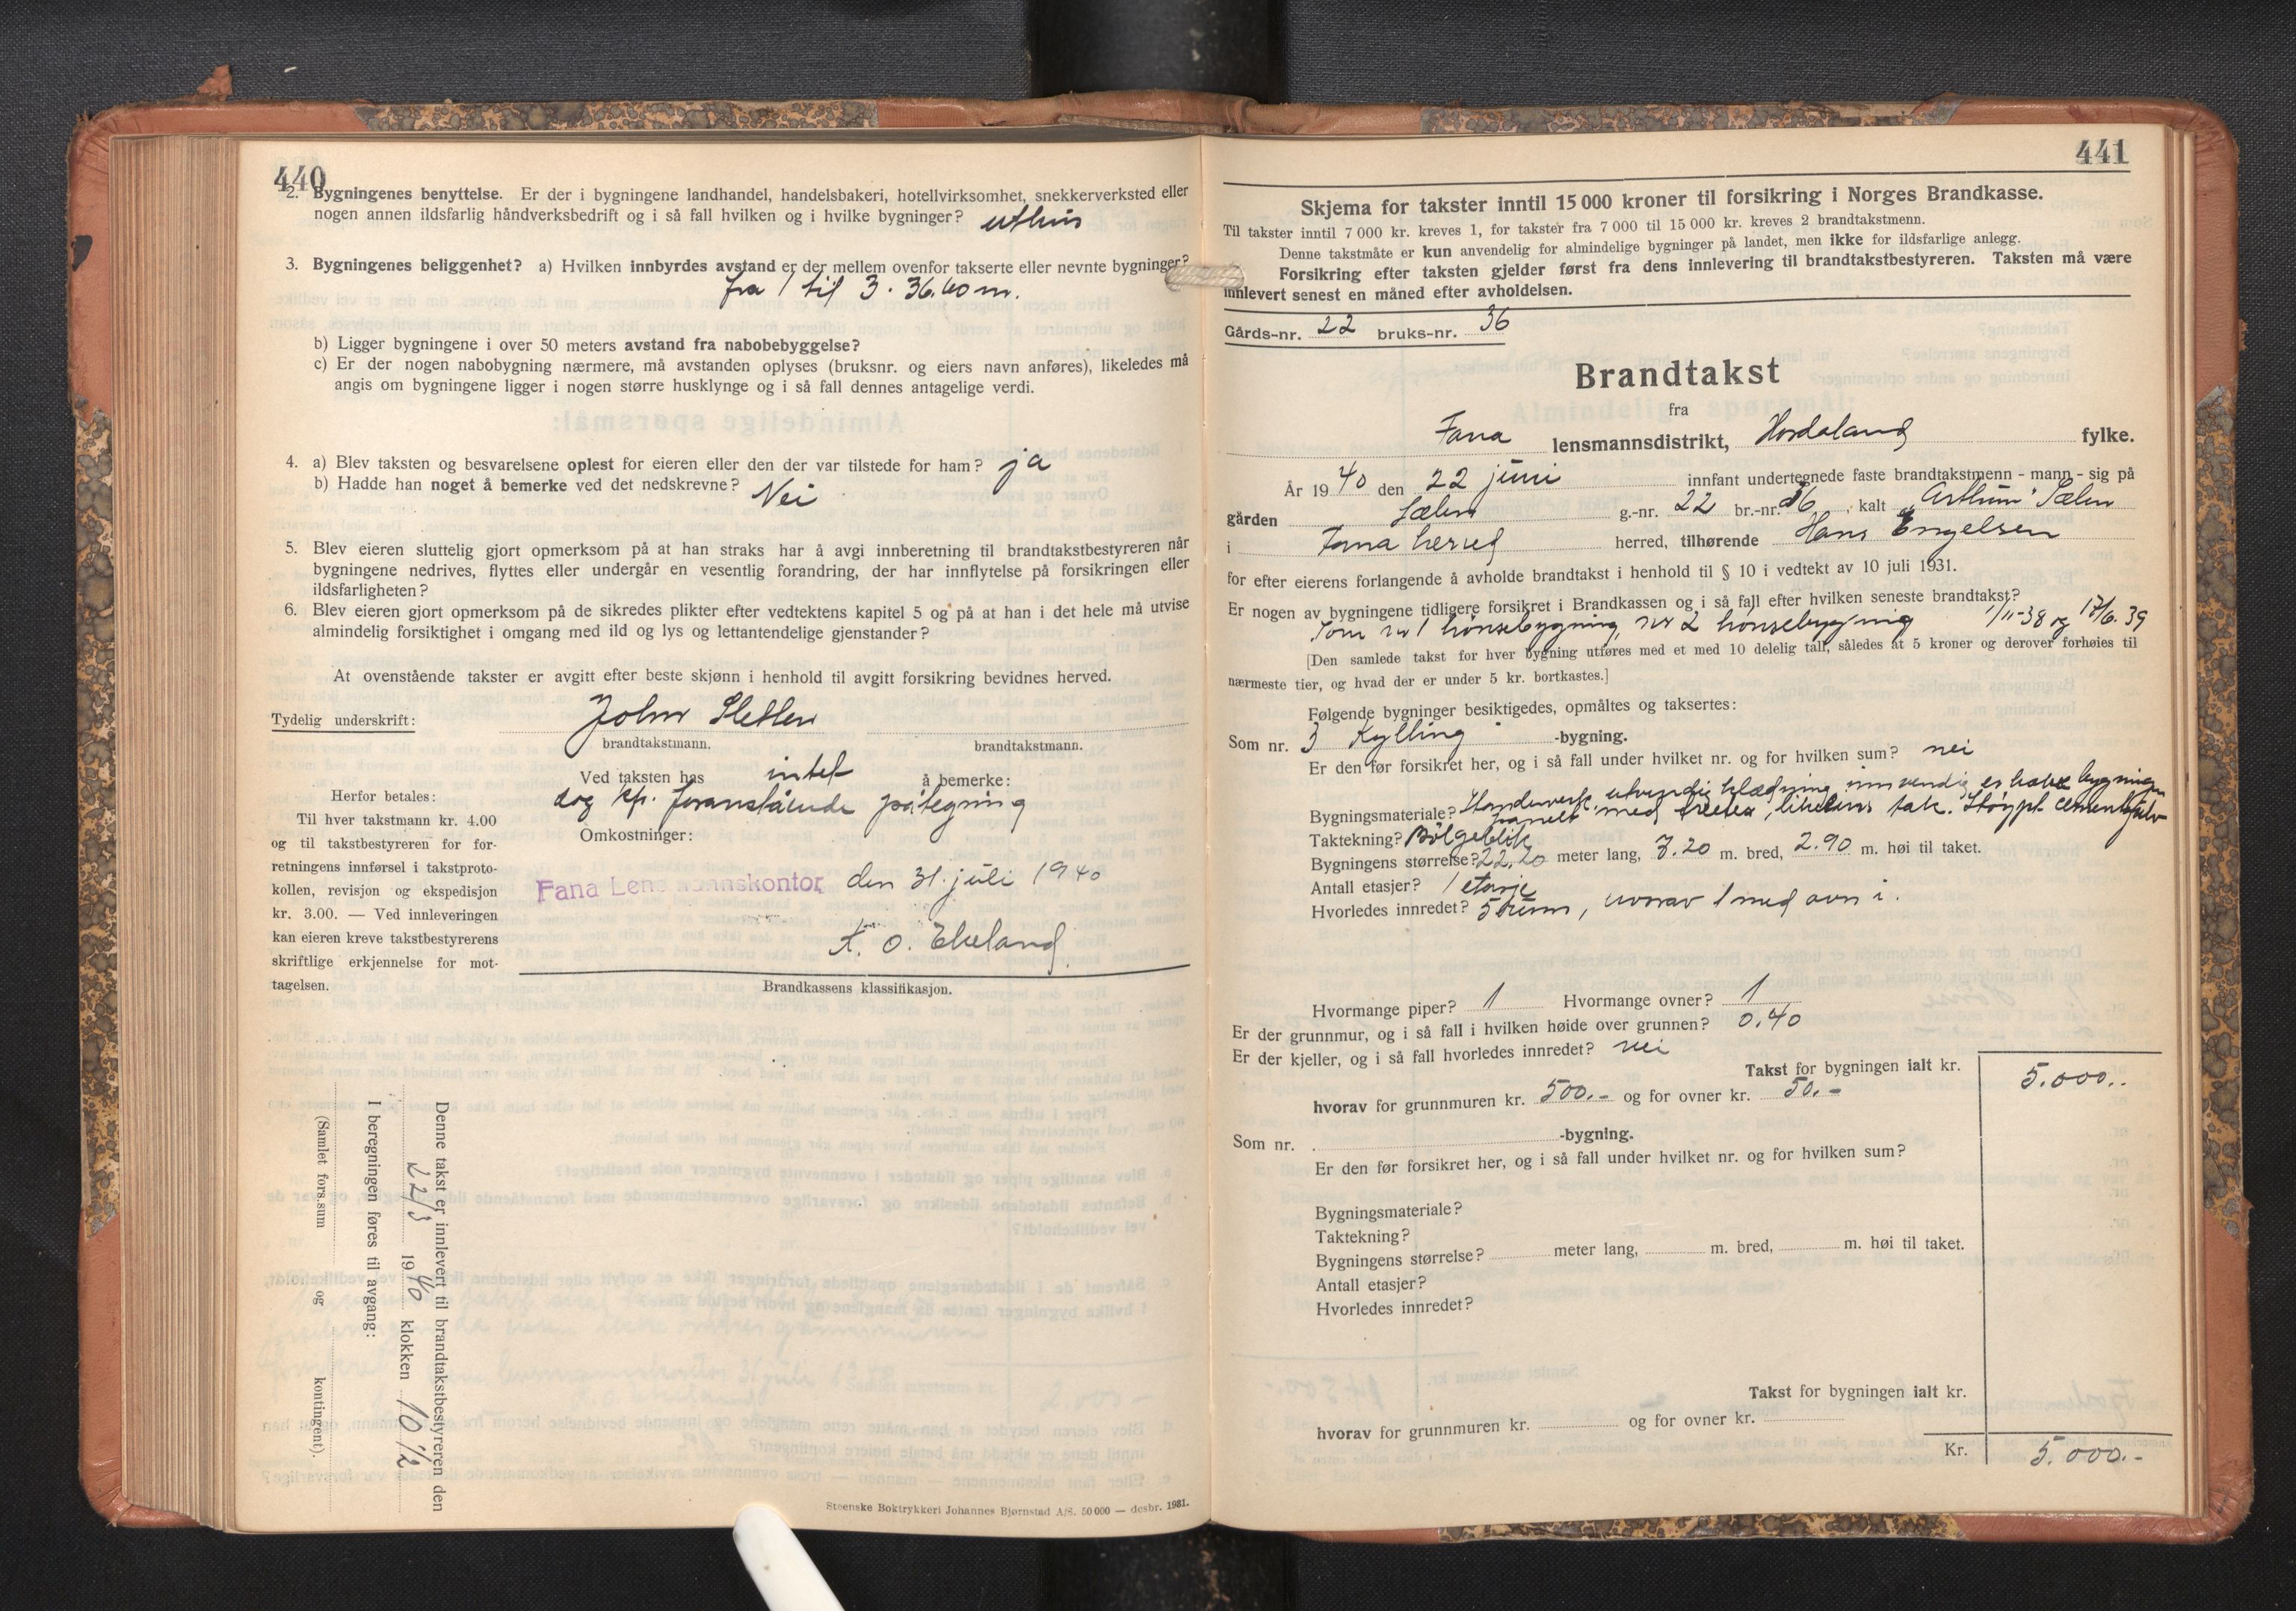 440
2. Bygningenes benyttelse. Er der i bygningene landhandel, handelsbakeri, hotellvirksomhet, snekkerverksted eller
nogen annen ildsfarlig håndverksbedrift og i så fall hvilken og i hvilke bygninger? uthus
3. Bygningenes beliggenhet? a) Hvilken innbyrdes avstand er der mellem ovenfor takserte eller nevnte bygninger?
fra 1 til 3. 36.60 m.
b) Ligger bygningene i over 50 meters avstand fra nabobebyggelse?
c) Er der nogen nabobygning nærmere, må avstanden oplyses (bruksnr. og eiers navn anføres), likeledes må
angis om bygningene ligger i nogen større husklynge og i så fall dennes antagelige verdi.
4. a) Blev taksten og besvarelsene oplest for eieren eller den der var tilstede for ham? ja
b) Hadde han noget å bemerke ved det nedskrevne? Nei
5. Blev eieren sluttelig gjort opmerksom på at han straks har å avgi innberetning til brandtakstbestyreren når
bygningene nedrives, flyttes eller undergår en vesentlig forandring, der har innflytelse på forsikringen eller
ildsfarligheten?
6. Blev eieren gjort opmerksom på de sikredes plikter efter vedtektens kapitel 5 og på at han i det hele må utvise
almindelig forsiktighet i omgang med ild og lys og lettantendelige gjenstander?
At ovenstående takster er avgitt efter beste skjønn i henhold til avgitt forsikring bevidnes herved.
Tydelig underskrift: John Sletten
brandtakstmann. brandtakstmann.
Ved taksten has intet å bemerke:
dog kfr. foranstående påtegning
Omkostninger:
Herfor betales:
Til hver takstmann kr. 4.00
og til takstbestyreren for for-
retningens innførsel i takstproto-
kollen, revisjon og ekspedisjon
kr. 3.00. — Ved innleveringen
kan eieren kreve takstbestyrerens
skriftlige erkjennelse for mot-
tagelsen.
Fana Lensmannskontor den 31. juli 1940
K. O. Ekeland
Brandkassens klassifikasjon.
Denne takst er innlevert til brandtakstbestyreren den
22/3 1940 klokken 10 1/2
I beregningen føres til avgang:
(Samlet fors.sum og kontingent).
Steenske Boktrykkeri Johannes Bjørnstad A/S. 50 000 — desbr. 1931.
441
Skjema for takster inntil 15 000 kroner til forsikring i Norges Brandkasse.
Til takster inntil 7 000 kr. kreves 1, for takster fra 7 000 til 15 000 kr. kreves 2 brandtakstmenn.
Denne takstmåte er kun anvendelig for almindelige bygninger på landet, men ikke for ildsfarlige anlegg.
Forsikring efter taksten gjelder først fra dens innlevering til brandtakstbestyreren. Taksten må være
innlevert senest en måned efter avholdelsen.
Gårds-nr. 22 bruks-nr. 36
Brandtakst
fra
Fana lensmannsdistrikt, Hordaland fylke.
År 1940 den 22 juni innfant undertegnede faste brandtakstmenn - mann - sig på
gården Sælen g.-nr. 22 br.-nr. 36, kalt "Arthun" Sælen
i Fana herred herred, tilhørende Hans Engelsen
for efter eierens forlangende å avholde brandtakst i henhold til § 10 i vedtekt av 10 juli 1931.
Er nogen av bygningene tidligere forsikret i Brandkassen og i så fall efter hvilken seneste brandtakst?
Som nr 1 hønsebygning, nr 2 hønsebygning 1/11-38 og 17/6. 39
[Den samlede takst for hver bygning utføres med et med 10 delelig tall, således at 5 kroner og derover forhøies til
nærmeste tier, og hvad der er under 5 kr. bortkastes.]
Følgende bygninger besiktigedes, opmåltes og taksertes:
Som nr. 3 Kylling -bygning.
Er den før forsikret her, og i så fall under hvilket nr. og for hvilken sum? nei
Bygningsmateriale? utvendig klædning, innvendig er hele bygningen
panelt med likeens tak. Støypt cementgulv
Taktekning? Bølgeblik
Bygningens størrelse? 22,20 meter lang, 7.20 m. bred, 2.90 m. høi til taket.
Antall etasjer? 1 etasje
Hvorledes innredet? 5 rum, hvorav 1 med ovn i.
Hvormange piper? 1 Hvormange ovner? 1
Er der grunnmur, og i så fall i hvilken høide over grunnen? 0.40
Er der kjeller, og i så fall hvorledes innredet? nei
Takst for bygningen ialt kr. 5.000..
hvorav for grunnmuren kr. 500.- og for ovner kr. 50.-
Som nr. -bygning.
Er den før forsikret her, og i så fall under hvilket nr. og for hvilken sum?
Bygningsmateriale?
Taktekning?
Bygningens størrelse? meter lang, m. bred, m. høi til taket.
Antall etasjer?
Hvorledes innredet?
Takst for bygningen ialt kr.
hvorav for grunnmuren kr. og for ovner kr.
Kr. 5.000.-